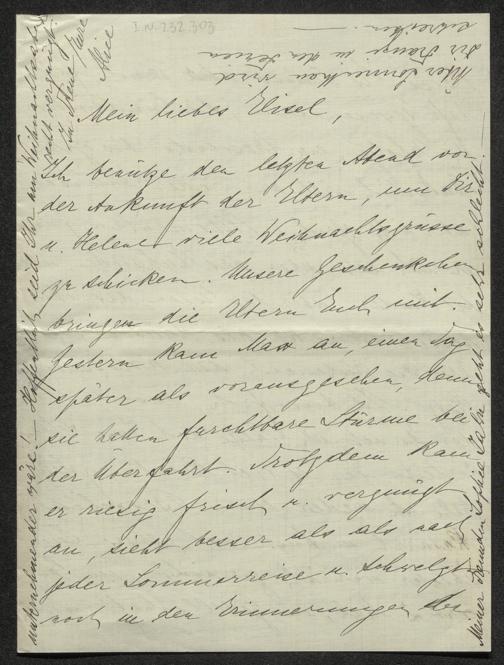 I.N. 232.303
Mein liebes Elisel,
Ich benütze den letzten Abend vor
der Ankunft der Eltern, um Dir
u. Helene viele Weihnachtsgrüsse
zu schicken. Unsere Geschenkchen
bringen die Eltern Euch mit.
Gestern kam Max an, einen Tag
später als vorausgesehen, denn
sie hatten furchtbare Stürme bei
der Überfahrt. Trotzdem kam
er riesig frisch u. vergnügt
an, sieht besser als als nach
jeder Sommerreise u. schwelgt
noch in den Erinnerungen der
Meiner Freundin Sophie Jahn geht es sehr schlecht.
unternehmender wäre! Hoffentlich seid Ihr am Weihnachtsabend
recht vergnügt.
In Liebe Eure
Alice
wird
der Frauze in den Ferien
schreiben.